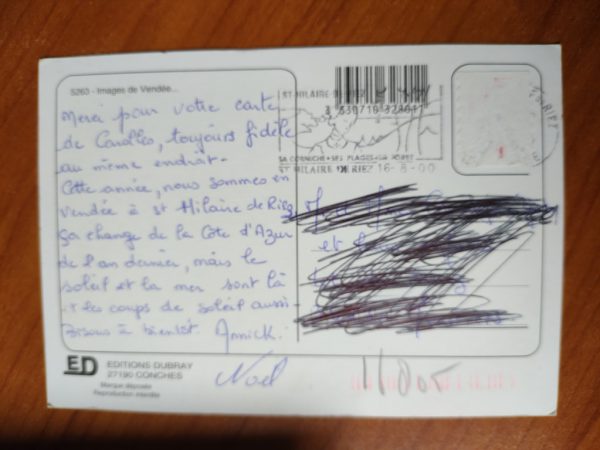 5263 - Images de Vendée...
Merci pour votre carte
de Carolles, toujours fidèle
au même endroit.
Cette année, nous sommes en
vendée à St Hilaire de Riez
ça change de la Côte d'Azur
de l'an dernier, mais le
soleil et la mer sont là
et les coups de soleil aussi.
Bisous à bientôt. Annick.
Noël
ST HILAIRE DE RIEZ
SA CORNICHE • SES PLAGES • SA FORET
ST HILAIRE DE RIEZ 16-8-00
et
ED
EDITIONS DUBRAY
27190 CONCHES
Marque déposée
Reproduction interdite